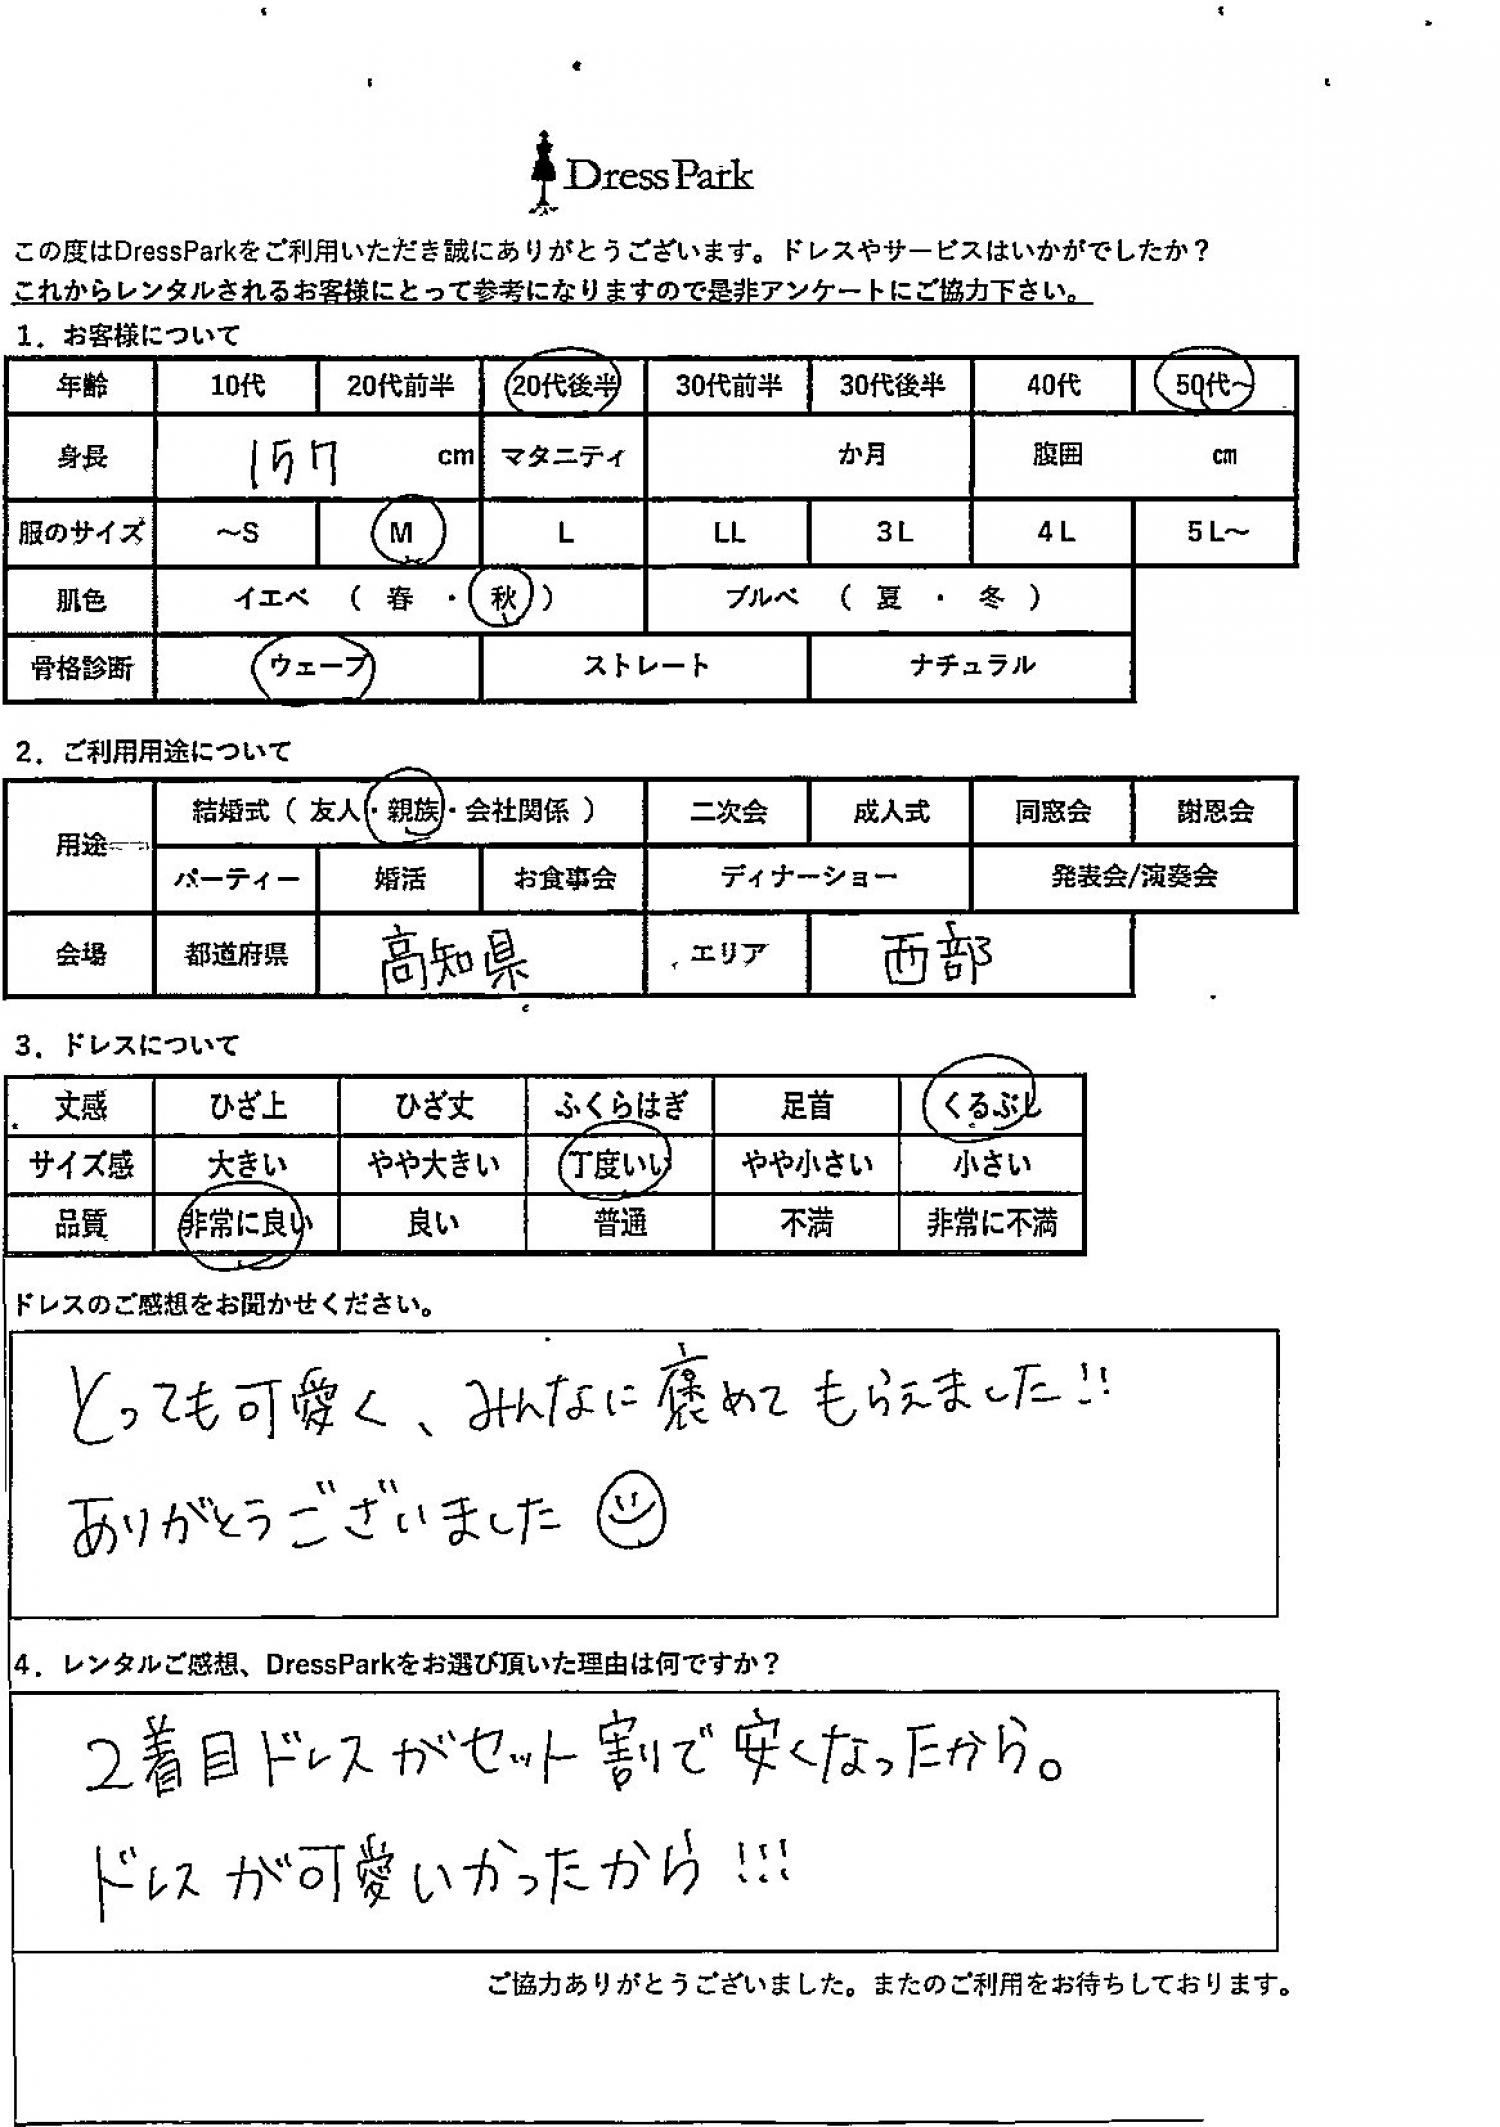 DressPark
この度はDressParkをご利用いただき誠にありがとうございます。ドレスやサービスはいかがでしたか？
これからレンタルされるお客様にとって参考になりますので是非アンケートにご協力下さい。
1．お客様について
年齢 10代 20代前半 20代後半 30代前半 30代後半 40代 50代～
身長 157 cm マタニティ か月 腹囲 cm
服のサイズ ～S M L LL 3L 4L 5L～
肌色 イエベ （ 春 ・ 秋 ） ブルベ （ 夏 ・ 冬 ）
骨格診断 ウェーブ ストレート ナチュラル
2．ご利用用途について
用途 結婚式（ 友人・親族・会社関係 ） 二次会 成人式 同窓会 謝恩会
パーティー 婚活 お食事会 ディナーショー 発表会/演奏会
会場 都道府県 高知県 エリア 西部
3．ドレスについて
丈感 ひざ上 ひざ丈 ふくらはぎ 足首 くるぶし
サイズ感 大きい やや大きい 丁度いい やや小さい 小さい
品質 非常に良い 良い 普通 不満 非常に不満
ドレスのご感想をお聞かせください。
とっても可愛く、みんなに褒めてもらえました!!
ありがとうございました
4．レンタルご感想、DressParkをお選び頂いた理由は何ですか？
2着目ドレスがセット割りで安くなったから。
ドレスが可愛いかったから!!!
ご協力ありがとうございました。またのご利用をお待ちしております。